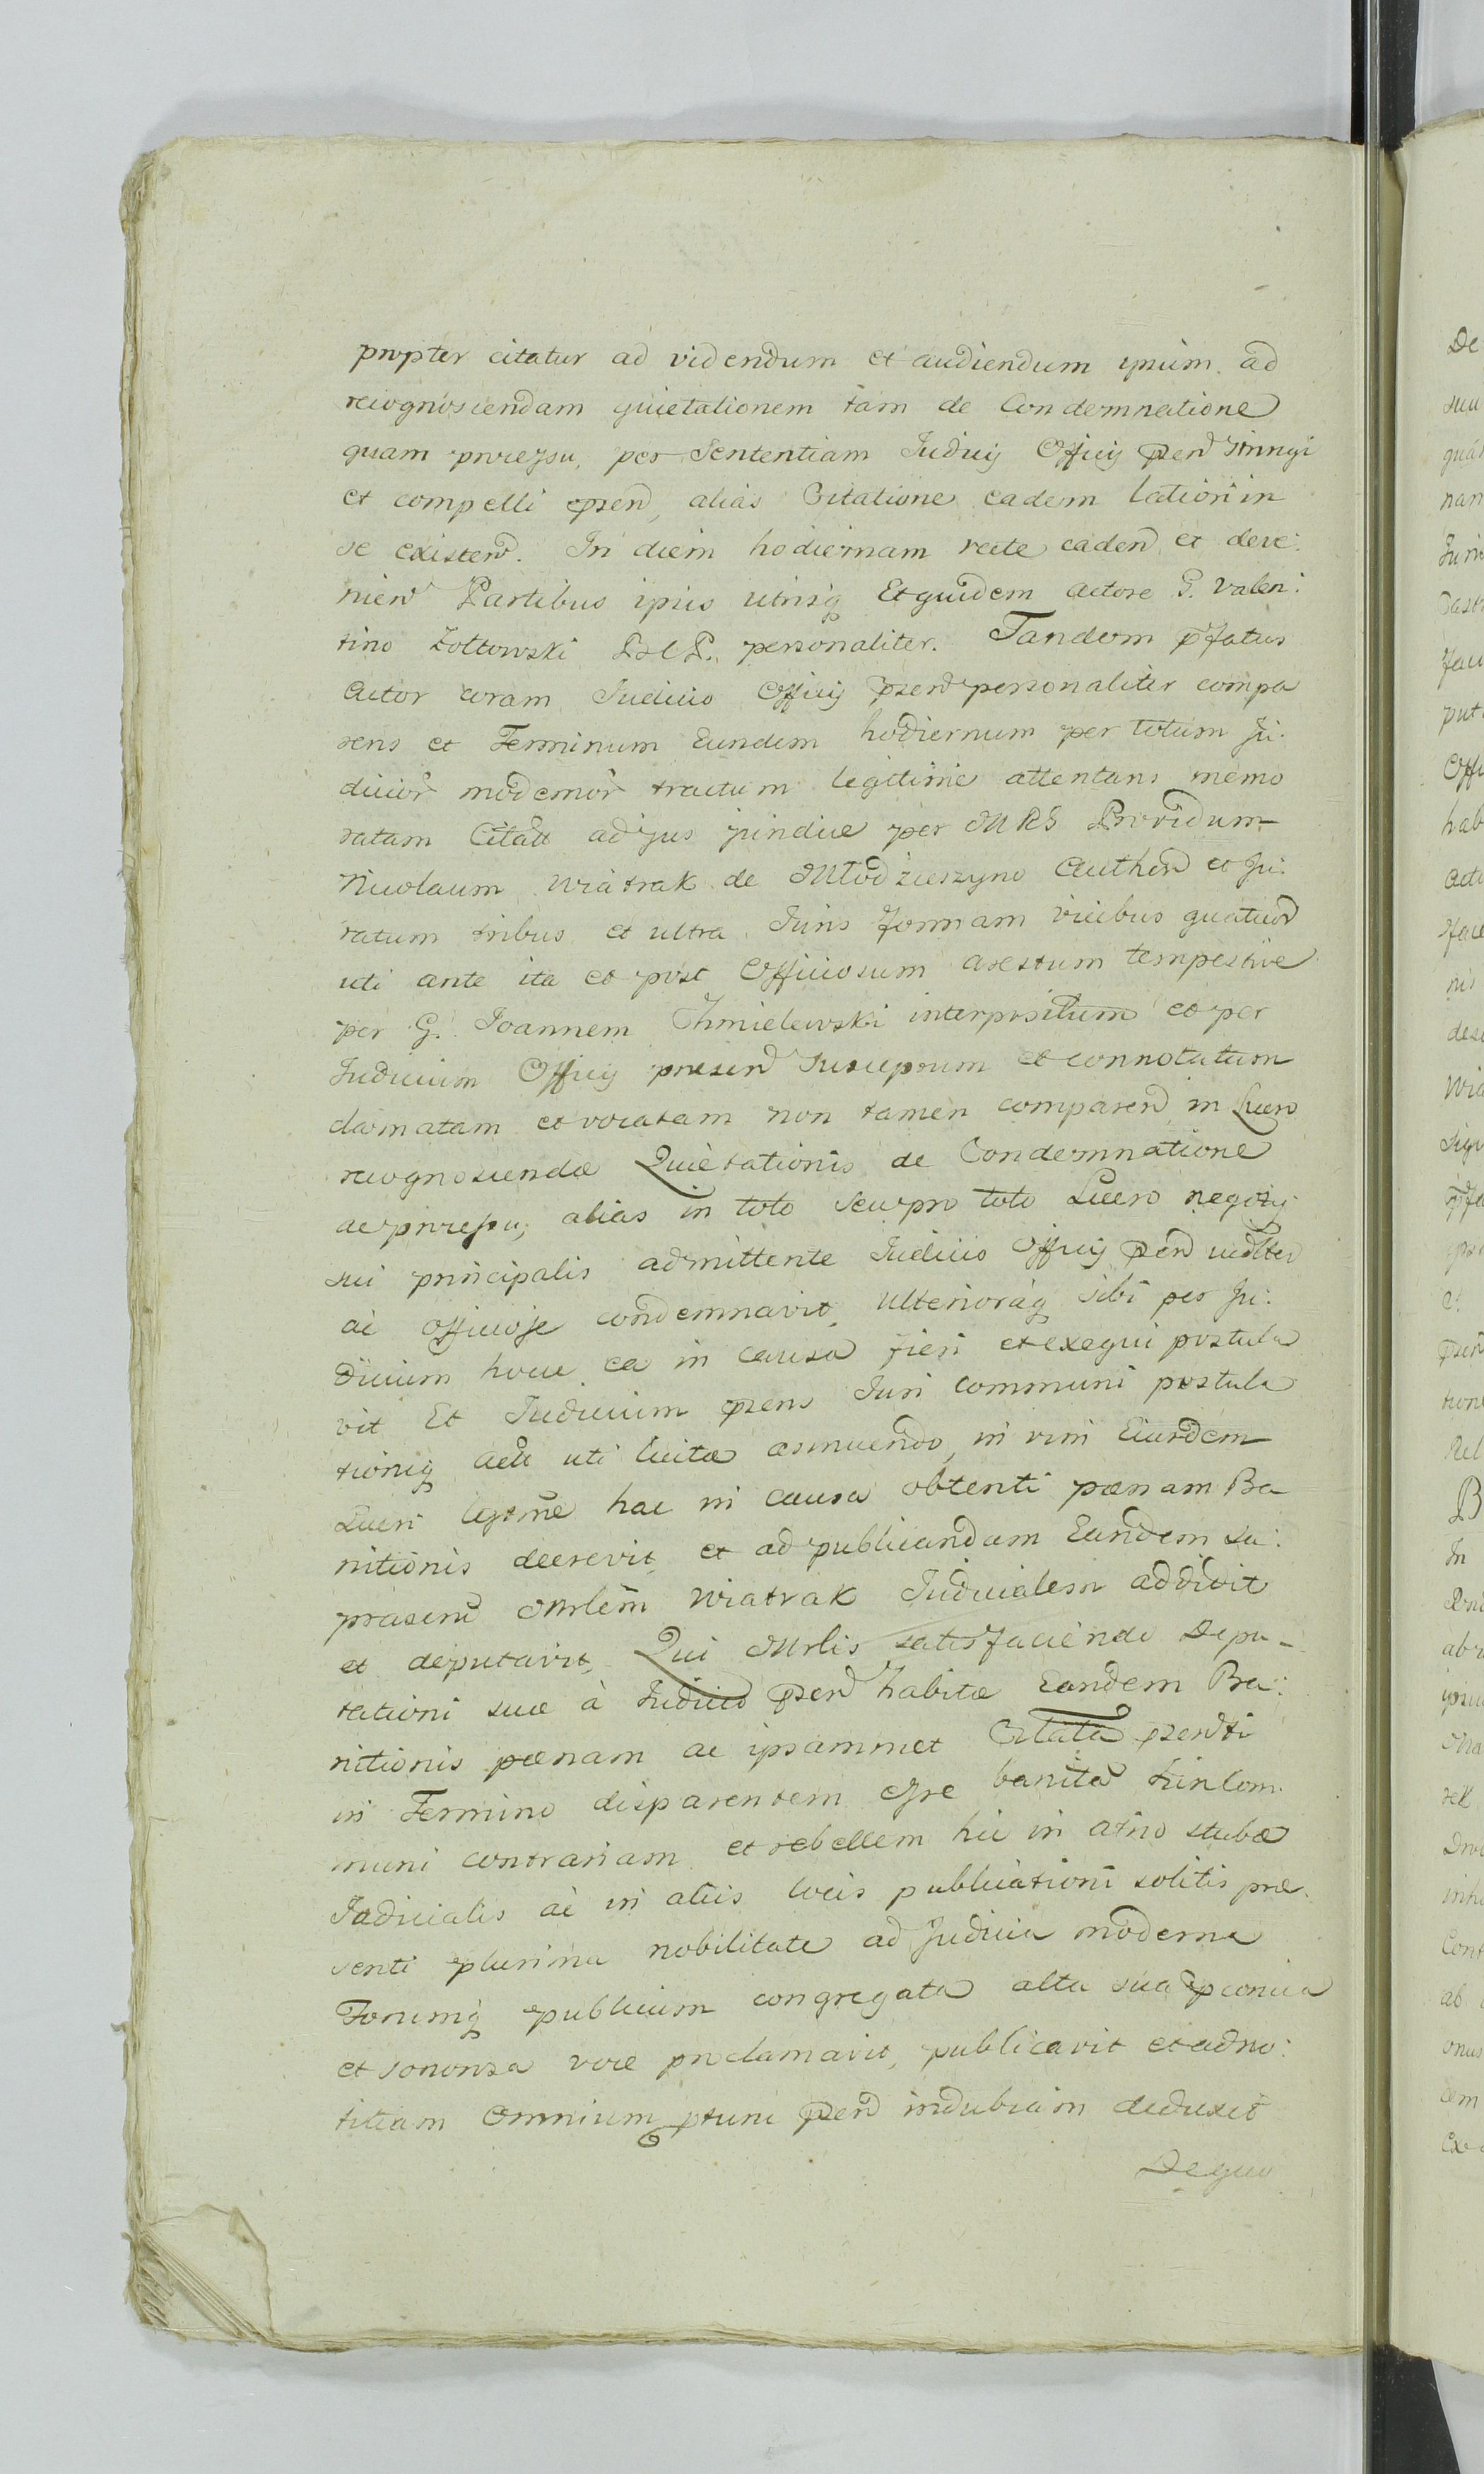 propter citatur ad videndum et audiendum ipsum ad
recognoscendam quietationem tam de Condemnatione
quam processu, per Sententiam Judicij Officij psen stringi
et compelli psen, alias Citatione eadem latiori in
se existen. In diem hodiernam recte caden et deve:
nien Partibus ipsis utrisq Et quidem actore G. Valen:
tino Zołtowski personaliter. Tandem pfatus
Actor coram Judicio Officij psen personaliter compa
rens et Terminum Eundem hodiernum per totum Ju:
dicior modernor tractum legitime attentans memo
ratam Citatt ad jus per MRS Providum
Nicolaum Wiatrak de Młodzieszyno Authen et Ju:
ratum tribus et ultra Juris formam vicibus quatuor
uti ante ita et post Officiosum arestum tempestive
per G. Joannem Chmielewski interpositum et per
Judicium Officij presen susceptum et connotatum
clamatam et vocatam non tamen comparen in Lucro
recognoscendæ Quietationis de Condemnatione
ac processu, alias in toto seu pro toto Lucro negotij
sui principalis admittente Judicio Officij psen
ac officiose condemnavit, ulterioraq sibi per Ju:
dicium hocce ea in causa fieri et exequi postula
vit Et Judicium psens Juri communi postula
tioniq uti licitæ annuendo, in vim Ejusdem
Lucri hac in causa obtenti pænam Ba
nitionis decrevit, et ad publicandam Eandem su:
prascrip Mrlem Wiatrak Judicialem addidit
et deputavit, Qui Mrlis satisfaciendo Depu-
tationi suæ à Judicio psen habitæ Eandem Ba:
nitionis pænam ac ipsammet Citata
in Termino disparentem Com:
muni contrariam et rebellem hic in atrio stubæ
Judicialis ac in aliis locis publicationi solitis præ:
senti plurima nobilitate ad Judicia moderna
Forumq publicum congregata alta sua
et sonorosa voce proclamavit, publicavit et ad no:
titiam omnium psen indubiam deduxit
De quo
De
suu
nam
Juri
put
Offi
hab
acto
nis
Wia
B
In
Cont
ab
onus